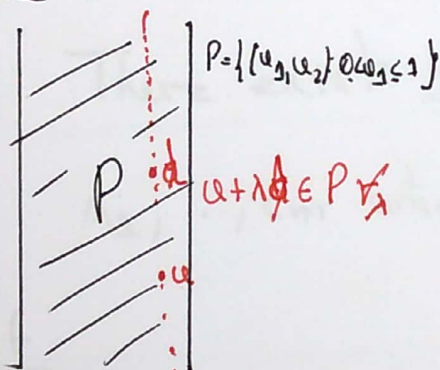 P={(u₁,u₂): 0≤u₁≤1}
P
d
u+λd ∈ P ∀λ
u